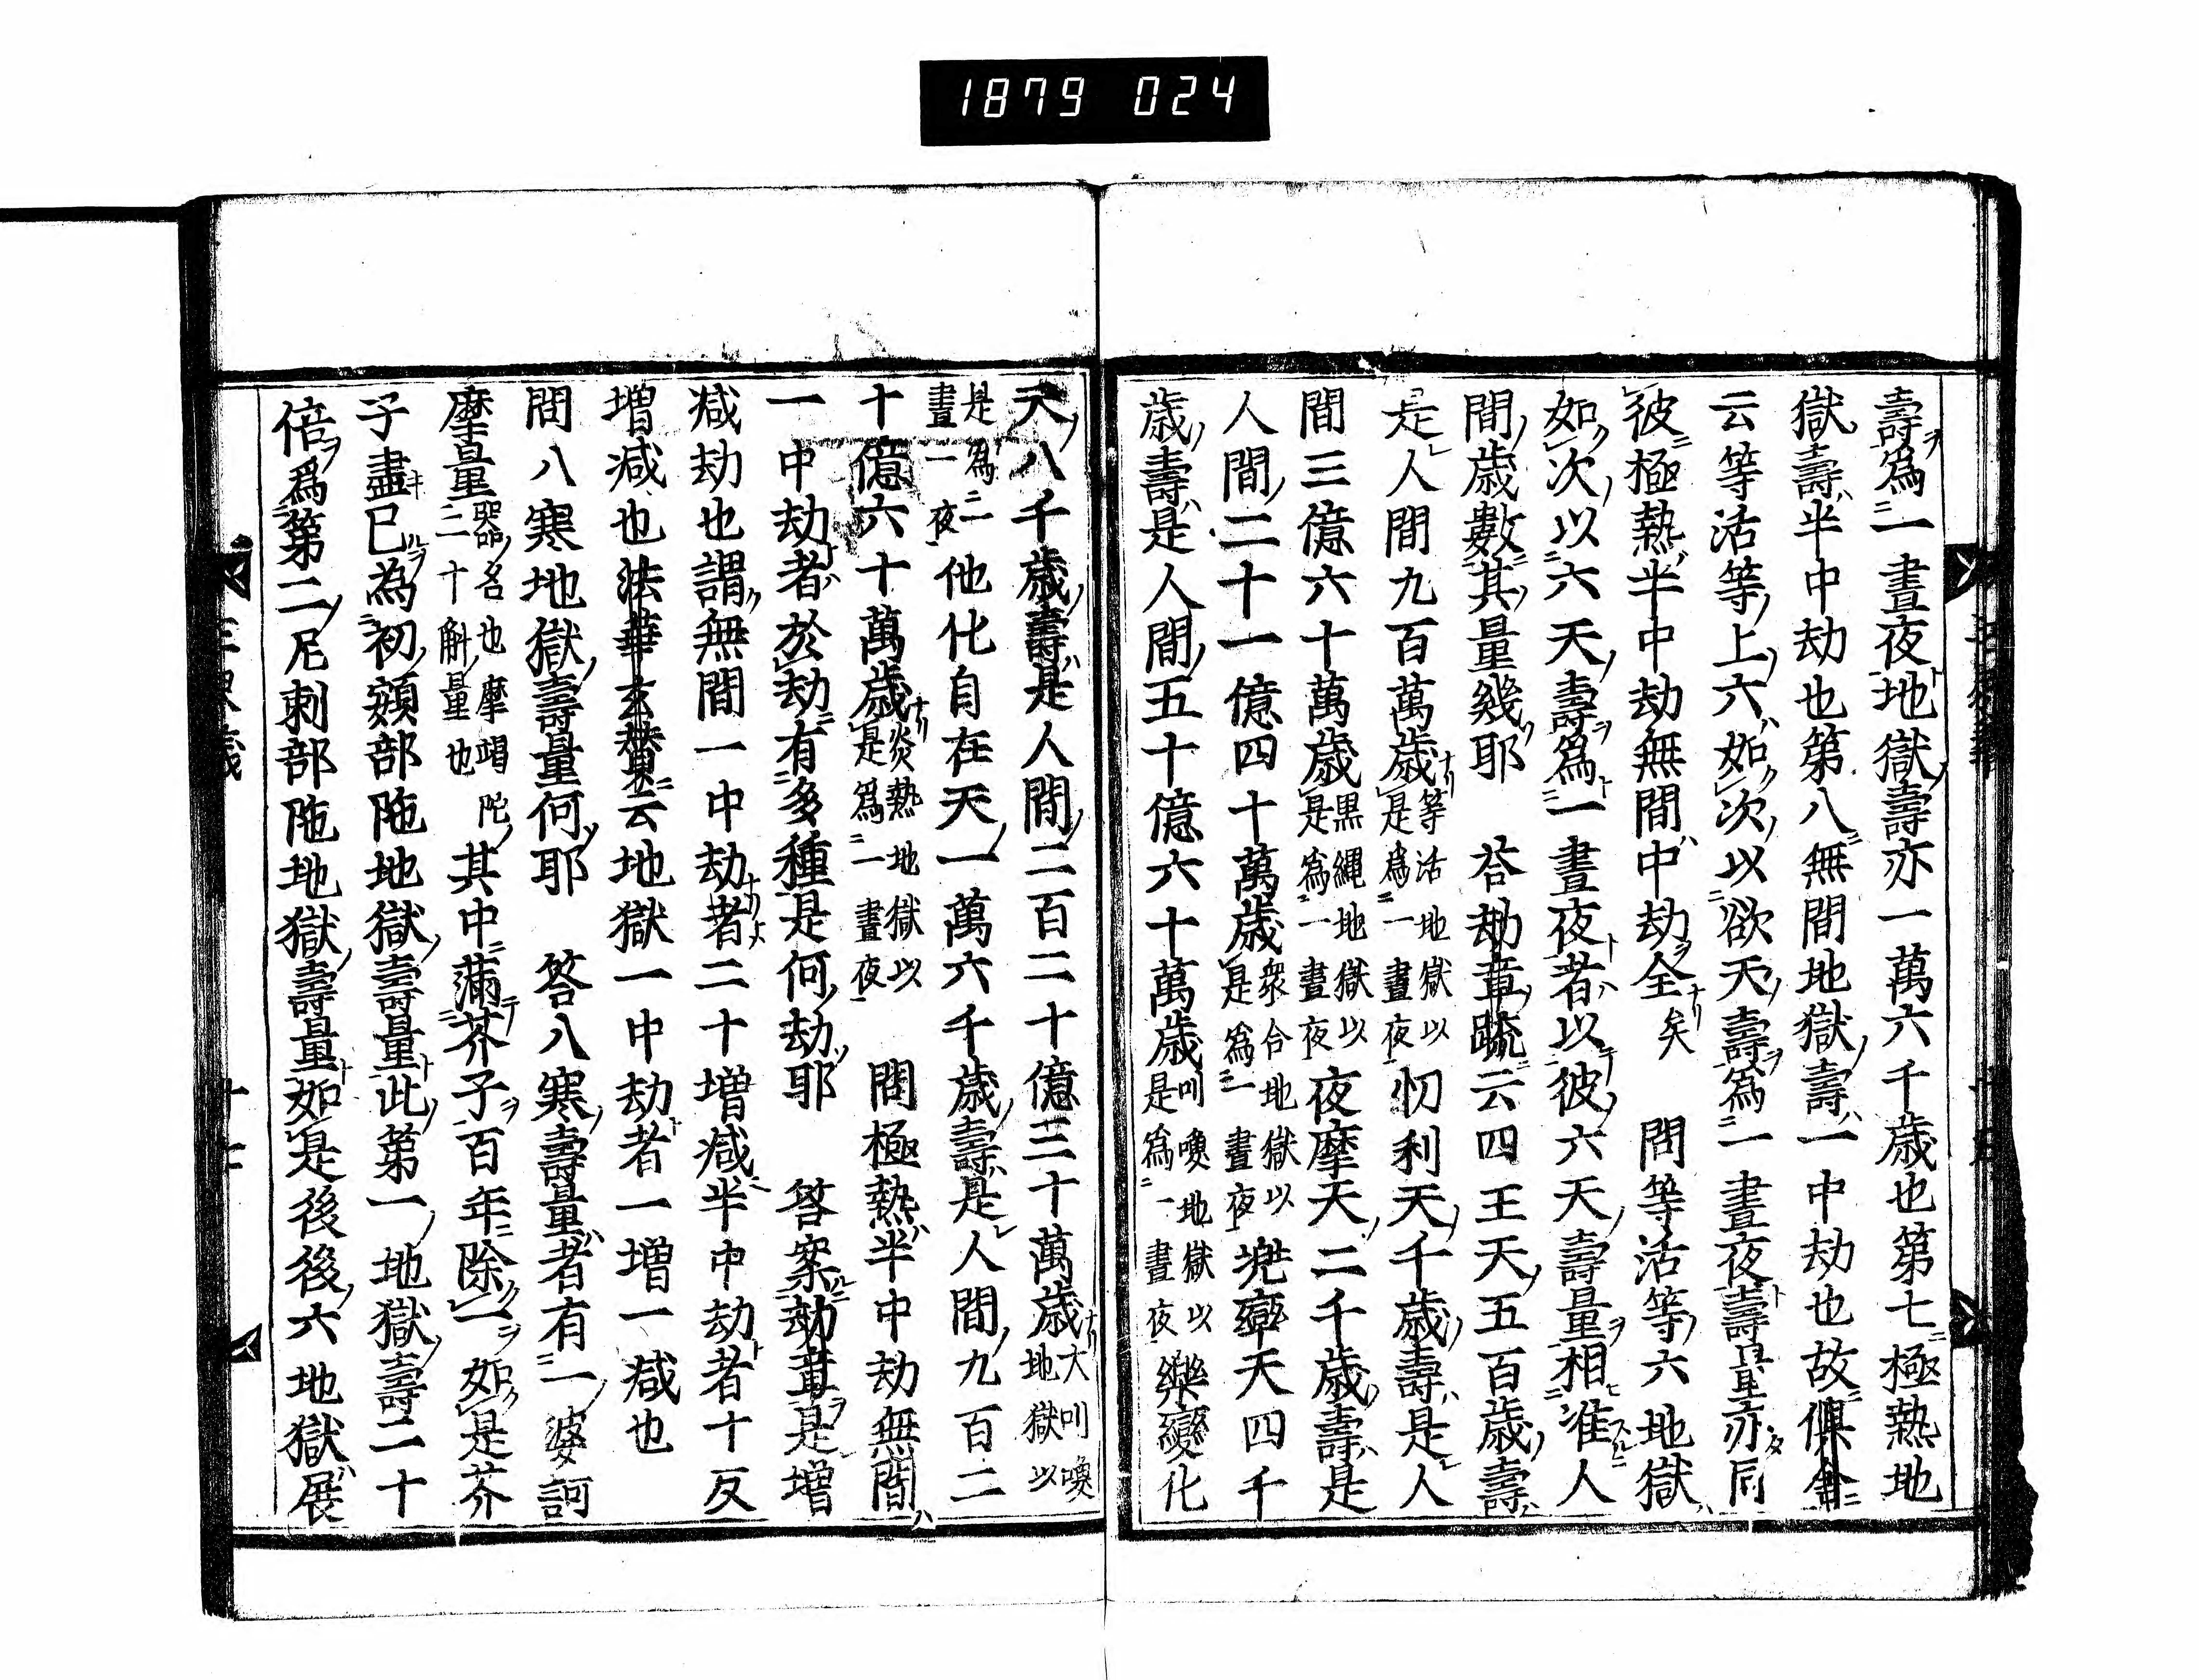 1879 024
壽為一晝夜地獄壽亦一萬六千歳也第七極熱地
獄壽半中劫也第八無間地獄壽一中劫也故倶舎
云等活等上六如次以欲天壽為一晝夜壽量亦同
彼極熱半中劫無間中劫全矣　問等活等六地獄
如次以六天壽爲一晝夜者以彼六天壽量相准人
間歳數其量幾耶　答劫章疏云四王天五百歳壽
是人間九百萬歳等活地獄以是為一晝夜忉利天千歳壽是人
間三億六十萬歳黒縄地獄以是為一晝夜夜摩天二千歳壽是
人間二十一億四十萬歳衆合地獄以是為一晝夜兠率天四千
歳壽是人間五十億六十萬歳叫喚地獄以是為一晝夜樂變化
天八千歳壽是人間二百二十億三十萬歳大叫喚地獄以
是為一晝一夜他化自在天一萬六千歳壽是人間九百二
十億六十萬歳炎熱地獄以是爲一晝夜　問極熱半中劫無間
一中劫者於劫有多種是何劫耶　答案劫章是増
减劫也謂無間一中劫者二十増减半中劫者十反
増减也法華玄賛云地獄一中劫者一増一减也
問八寒地獄壽量何耶　答八寒壽量者有一婆訶
摩量二十斛量也摩竭陀其中蒲芥子百年除一如是芥
子盡已為初頞部陁地獄壽量此第一地獄壽二十
倍爲第二尼剌部陁地獄壽量如是後後六地獄展